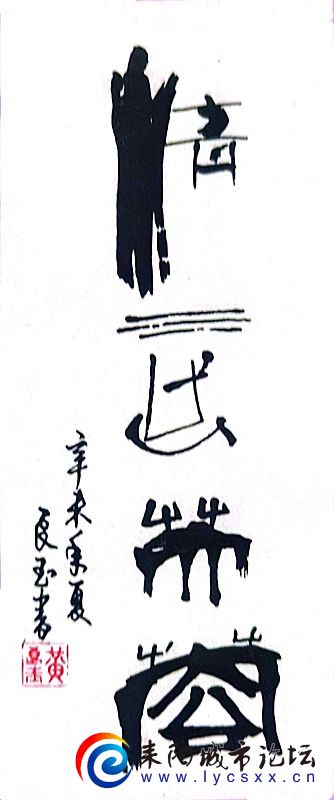 情
芙
蓉
辛未年夏
良玉书
黄良玉
耒阳城市论坛
www.lycsxx.cn